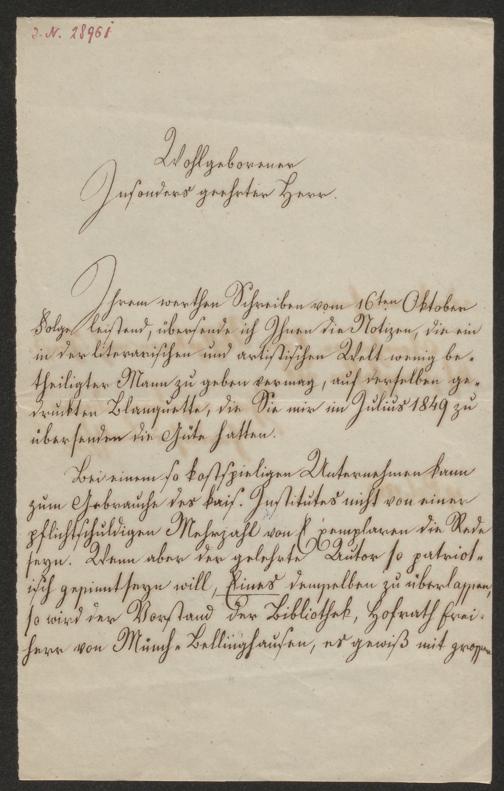 J. N. 28961
Wohlgeborener
Insonders geehrter Herr.
Ihrem werthen Schreiben vom 16ten Oktober
Folge leistend, übersende ich Ihnen die Notizen, die ein
in der literarischen und artistischen Welt wenig be-
theiligter Mann zu geben vermag, auf derselben ge-
druckten Blanquette, die Sie mir im Julius 1849 zu
übersenden die Güte hatten.
Bei einem so kostspieligen Unternehmen kann
zum Gebrauche des kais. Institutes nicht von einer
pflichtschuldigen Mehrzahl von Exemplaren die Rede
seyn. Wenn aber der gelehrte Autor so patriot-
isch gesinnt seyn will, Eines demselben zu überlassen,
so wird der Vorstand der Bibliothek, Hofrath Frei-
herr von Münch-Bellinghausen, es gewiß mit grossem